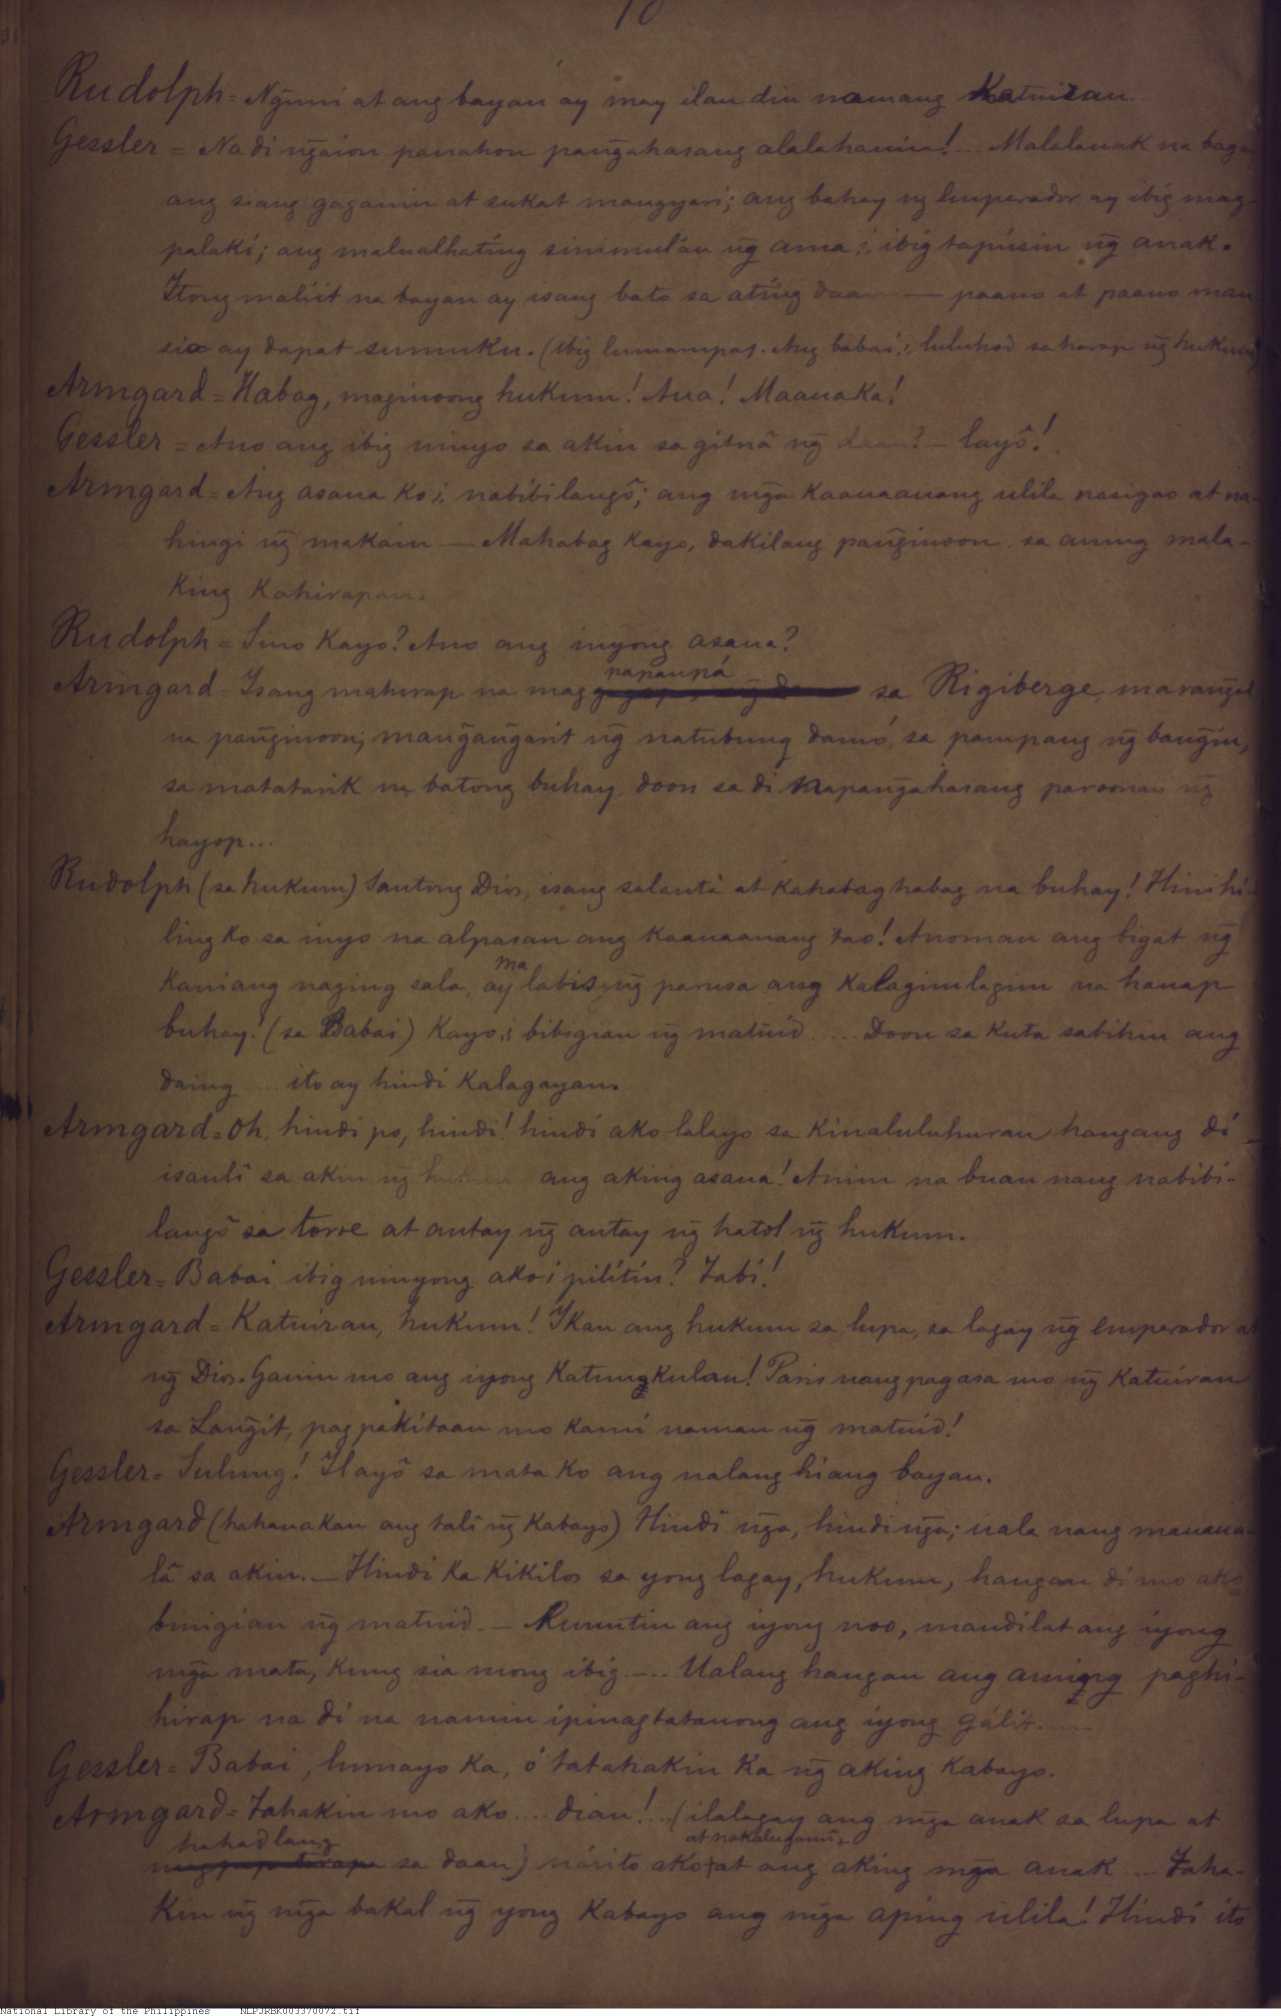 70
Rudolph = Ng̃uni at ang bayan ay may ilan din namang Katuiran.
Gessler = Na di ng̃aion panahon pang̃ahasang alalahanin! — Malalanak na baga
ang siang gagauin at sukat mangyari; ang bahay ng Emperador ay ibig mag-
palaki; ang malualhating sinimulan ng̃ ama, i, ibig tapusin ng̃ anak.
Itong maliit na bayan ay isang bato sa ating daan — paano at paano man
sia ay dapat sumuku. (ibig lumampas. Ang babai, i, luluhod sa harap ng̃ hukum)
Armgard = Habag, maginoong hukum! Aua! Maauaka!
Gessler = Ano ang ibig ninyo sa akin sa gitnâ ng̃ daan? — layô!
Armgard = Ang asaua ko, i, nabibilangô; ang mg̃a kaauaauang ulila nasigao at na-
hingi ng̃ makain — Mahabag kayo, dakilang pang̃inoon sa aming mala-
king kahirapan.
Rudolph = Sino kayo? Ano ang inyong asaua?
Armgard = Isang mahirap na mag sa Rigiberge, marang̃al
na pang̃inoon; mang̃ang̃arit ng̃ natubung damó, sa pampang ng̃ bang̃in,
sa matatarik na batong buhay doon sa di napang̃ahasang paroonan ng̃
hayop...
Rudolph (sa hukum) Santong Dios, isang salantá at kahabaghabag na buhay! Hinihi-
ling ko sa inyo na alpasan ang kaauaauang tao! Anoman ang bigat ng̃
kaniang naging sala, ay malabis ng̃ parusa ang kalagimlagim na hanap
buhay! (sa Babai) Kayo, i, bibigian ng̃ matuid .... Doon sa kuta sabihin ang
daing .... ito ay hindi kalagayan.
Armgard = Oh, hindi po, hindi! hindi ako lalayo sa kinaluluhuran hangang di
isauli sa akin ng̃ hukum ang aking asaua! Anim na buan nang nabibi-
langô sa torre at antay ng̃ antay ng̃ hatol ng̃ hukum.
Gessler = Babai ibig ninyong ako, i pilitin? Tabi!
Armgard = Katuiran, hukum! Ikau ang hukum sa lupa, sa lagay ng̃ Emperador at
ng̃ Dios. Gauin mo ang iyong katungkulan! Paris nang pagasa mo ng̃ katuiran
sa Lang̃it, pagpakitaan mo kami naman ng̃ matuid!
Gessler = Sulung! Ilayô sa mata ko ang nalang hiang bayan.
Armgard (hahauakan ang tali ng̃ kabayo) Hindi ng̃a, hindi ng̃a; uala nang mauaua-
lâ sa akin. — Hindi ka kikilos sa yong lagay, hukum, hangan di mo ako
binigian ng̃ matuid. — Kunutin ang iyong noo, mandilat ang iyong
mg̃a mata, kung sia mong ibig — .. Ualang hangan ang aming paghi-
hirap na di na namin ipinagtatanong ang iyong galit. ....
Gessler = Babai, lumayo ka, ó tatahakin ka ng̃ aking kabayo.
Armgard = Tahakin mo ako .... dian! ... (ilalagay ang mg̃a anak sa lupa at
hahadlang sa daan) nárito ako at ang aking mg̃a anak .... Taha-
kin ng̃ mg̃a bakal ng̃ yong kabayo ang mg̃a aping ulila! Hindi ito
National Library of the Philippines NLPJRBK003370072.tif